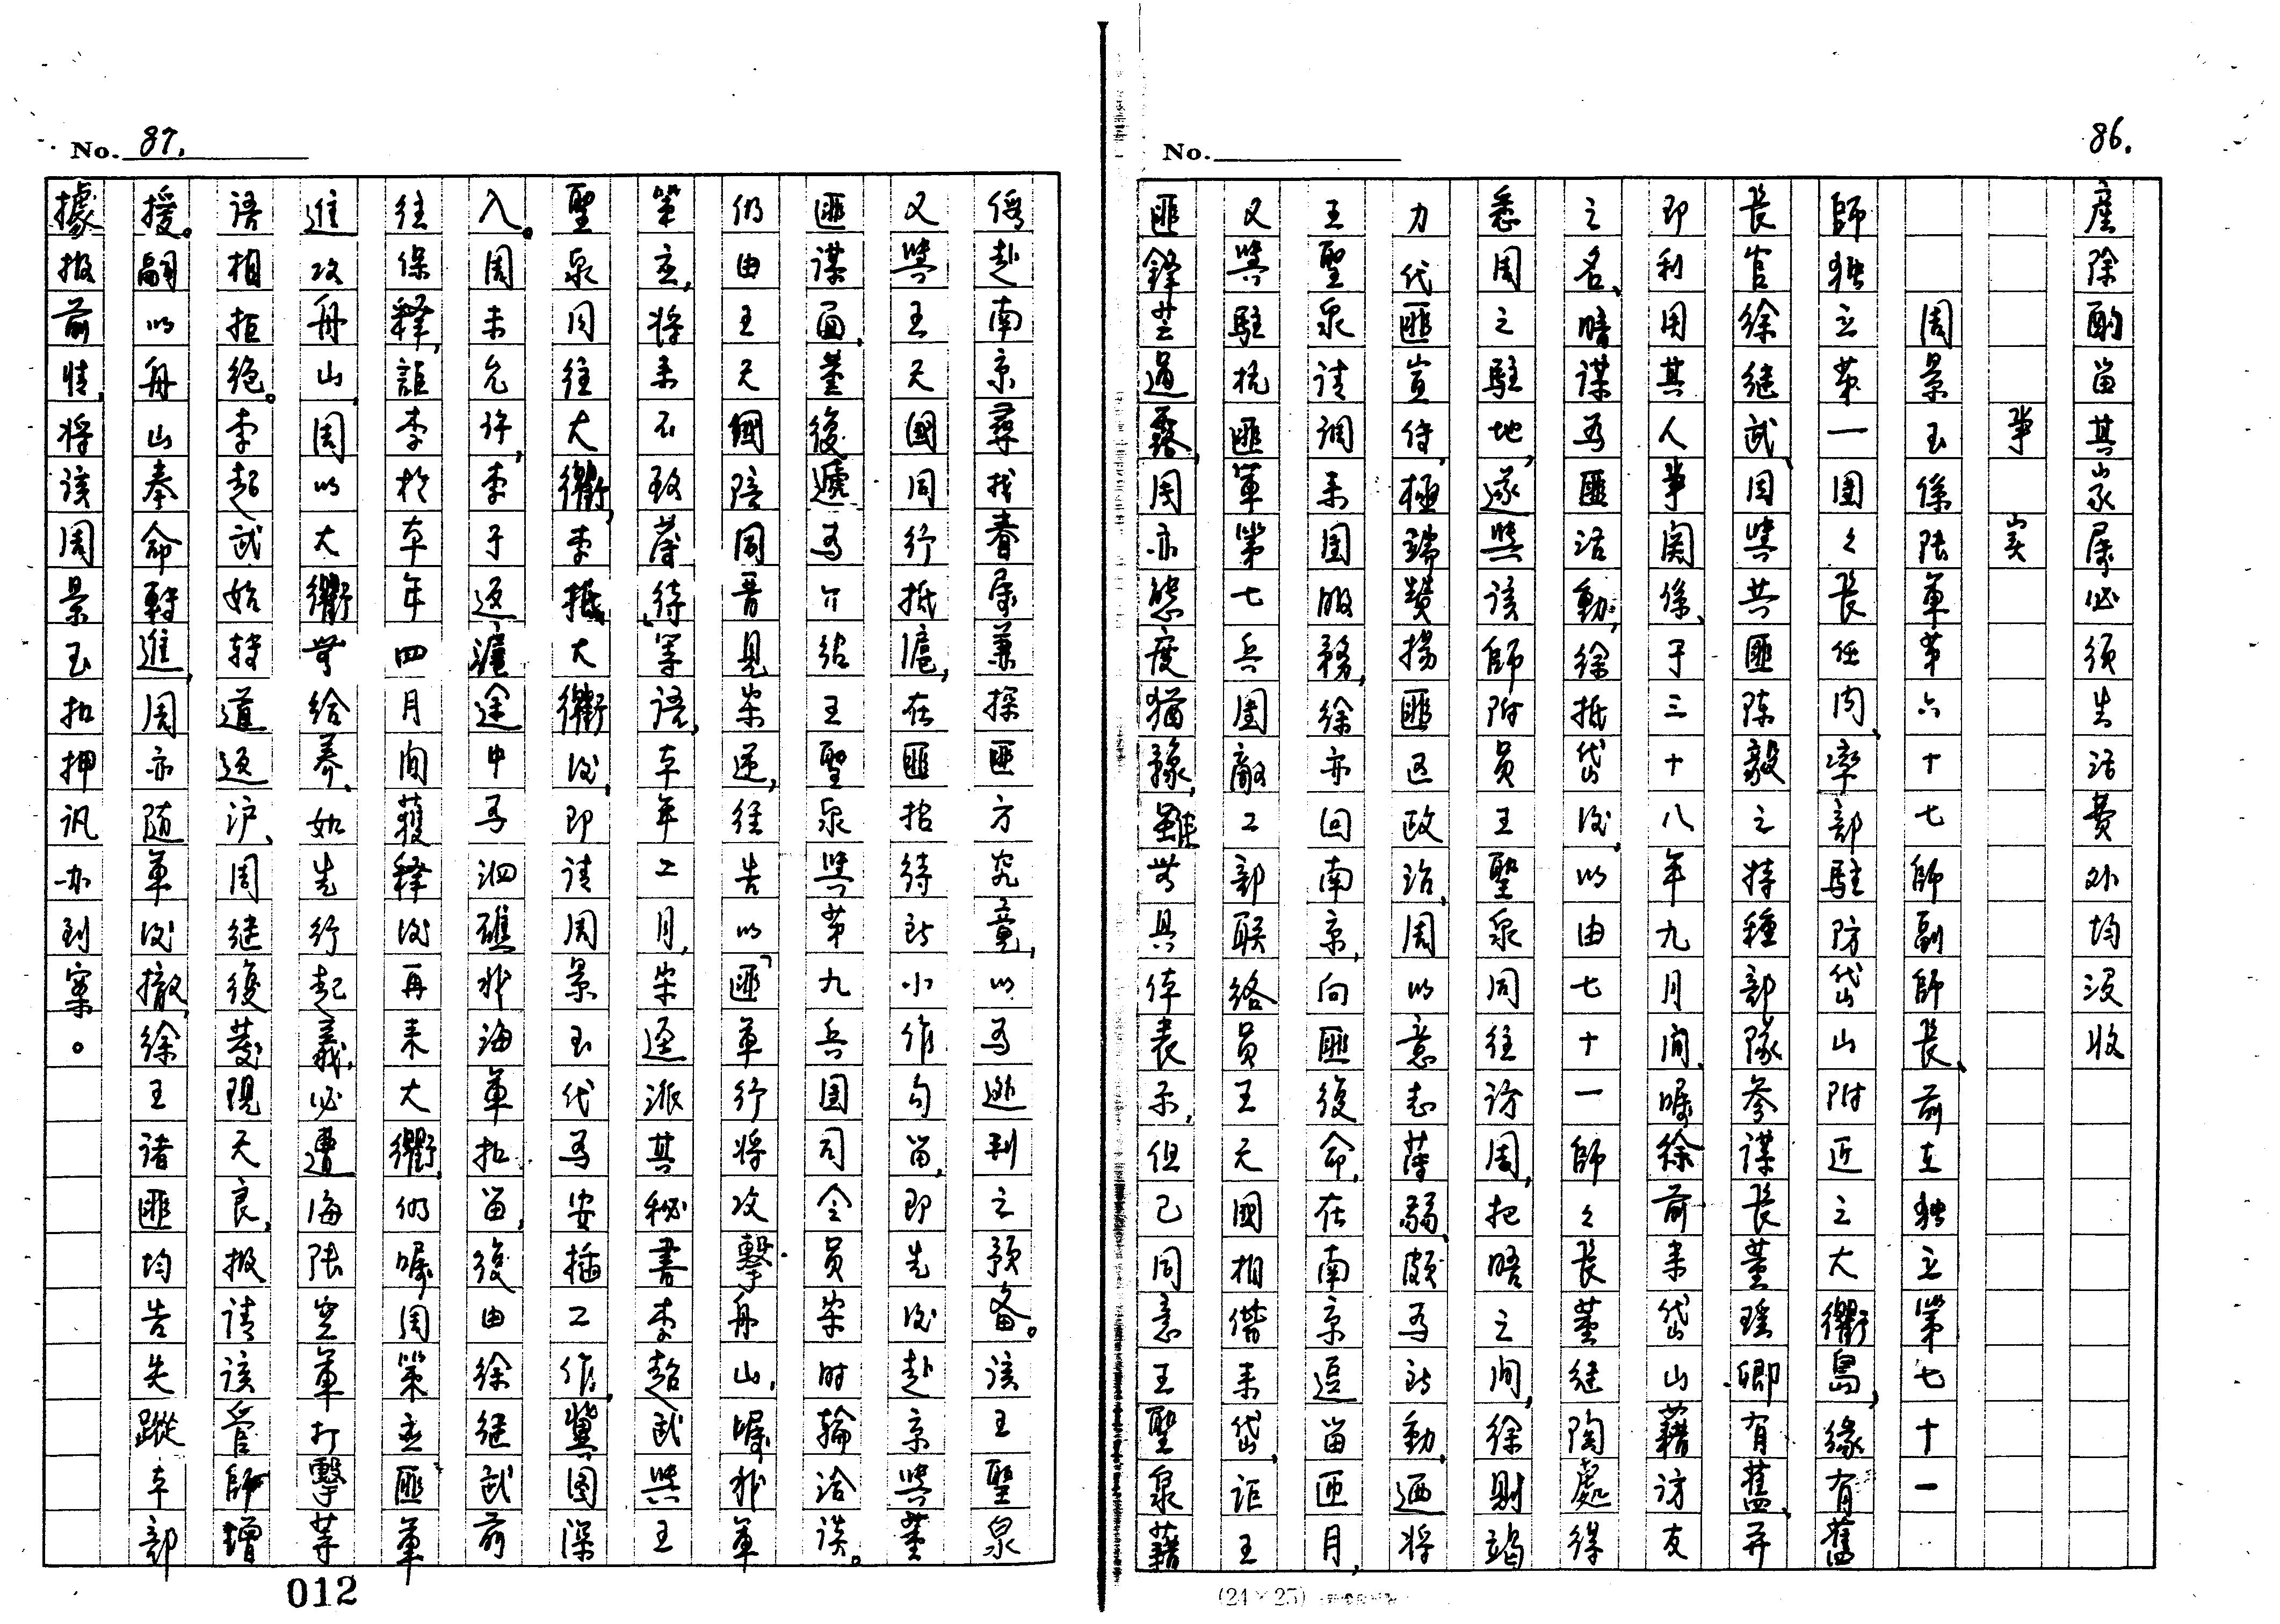 86.
No.
產除酌留其家屬必須生活費外均沒收
事實
周景玉係陸軍第六十七師副師長、前在獨立第七十一
師獨立第一團々長任內、率部駐防岱山附近之大衢島、緣有舊
長官徐继武、因與共匪陳毅之特種部隊參謀長董瑤卿有舊、并
即利用其人事関係、于三十八年九月間、囑徐前来岱山藉访友
之名、暗謀為匪活動、徐抵岱後、以由七十一師々長董继陶處得
悉周之駐地、遂與該師附員王聖泉同往访周、把晤之间、徐則竭
力代匪宣传、極端贊揚匪区政治、周以意志薄弱、頗為所動、迺将
王聖泉请调来团服務、徐亦回南京、向匪復命、在南京逗留匝月、
又與駐杭匪軍第七兵團敵工部联络員王天國相偕来岱、讵王
匪鋒芒過露、周亦態度猶豫、雖无具体表示、但已同意王聖泉藉
No. 87.
偽赴南京尋找眷屬兼探匪方究竟、以為逃到之預备。該王聖泉
又與王天國同行抵滬、在匪招待所小作勾留、即先後赴京與董
匪謀面、董復遞為介紹王聖泉與第九兵团司令員宋时輪洽談。
仍由王天國陪同晋見宋逆、经告以「匪軍行将攻擊舟山、囑我軍
策应、将来不致薄待」等語、本年二月、宋逆派其秘書李超武與王
聖泉同往大衢、李抵大衢後、即请周景玉代為安插工作、冀图深
入。周未允许、李于返滬途中為泗礁我海軍扣留、復由徐继武前
往保释、讵李於本年四月间獲释後再来大衢、仍囑周策应匪軍
進攻舟山、周以大衢無給养、如先行起義、必遭海陸空軍打擊等
語相拒绝。李超武始转道返沪、周继復燹現天良、报请該管師增
援。嗣以舟山奉命轉進、周亦随軍後撤、徐王诸匪均告失蹤、本部
據报前情、将該周景玉扣押讯办到案。
012
(24×25)